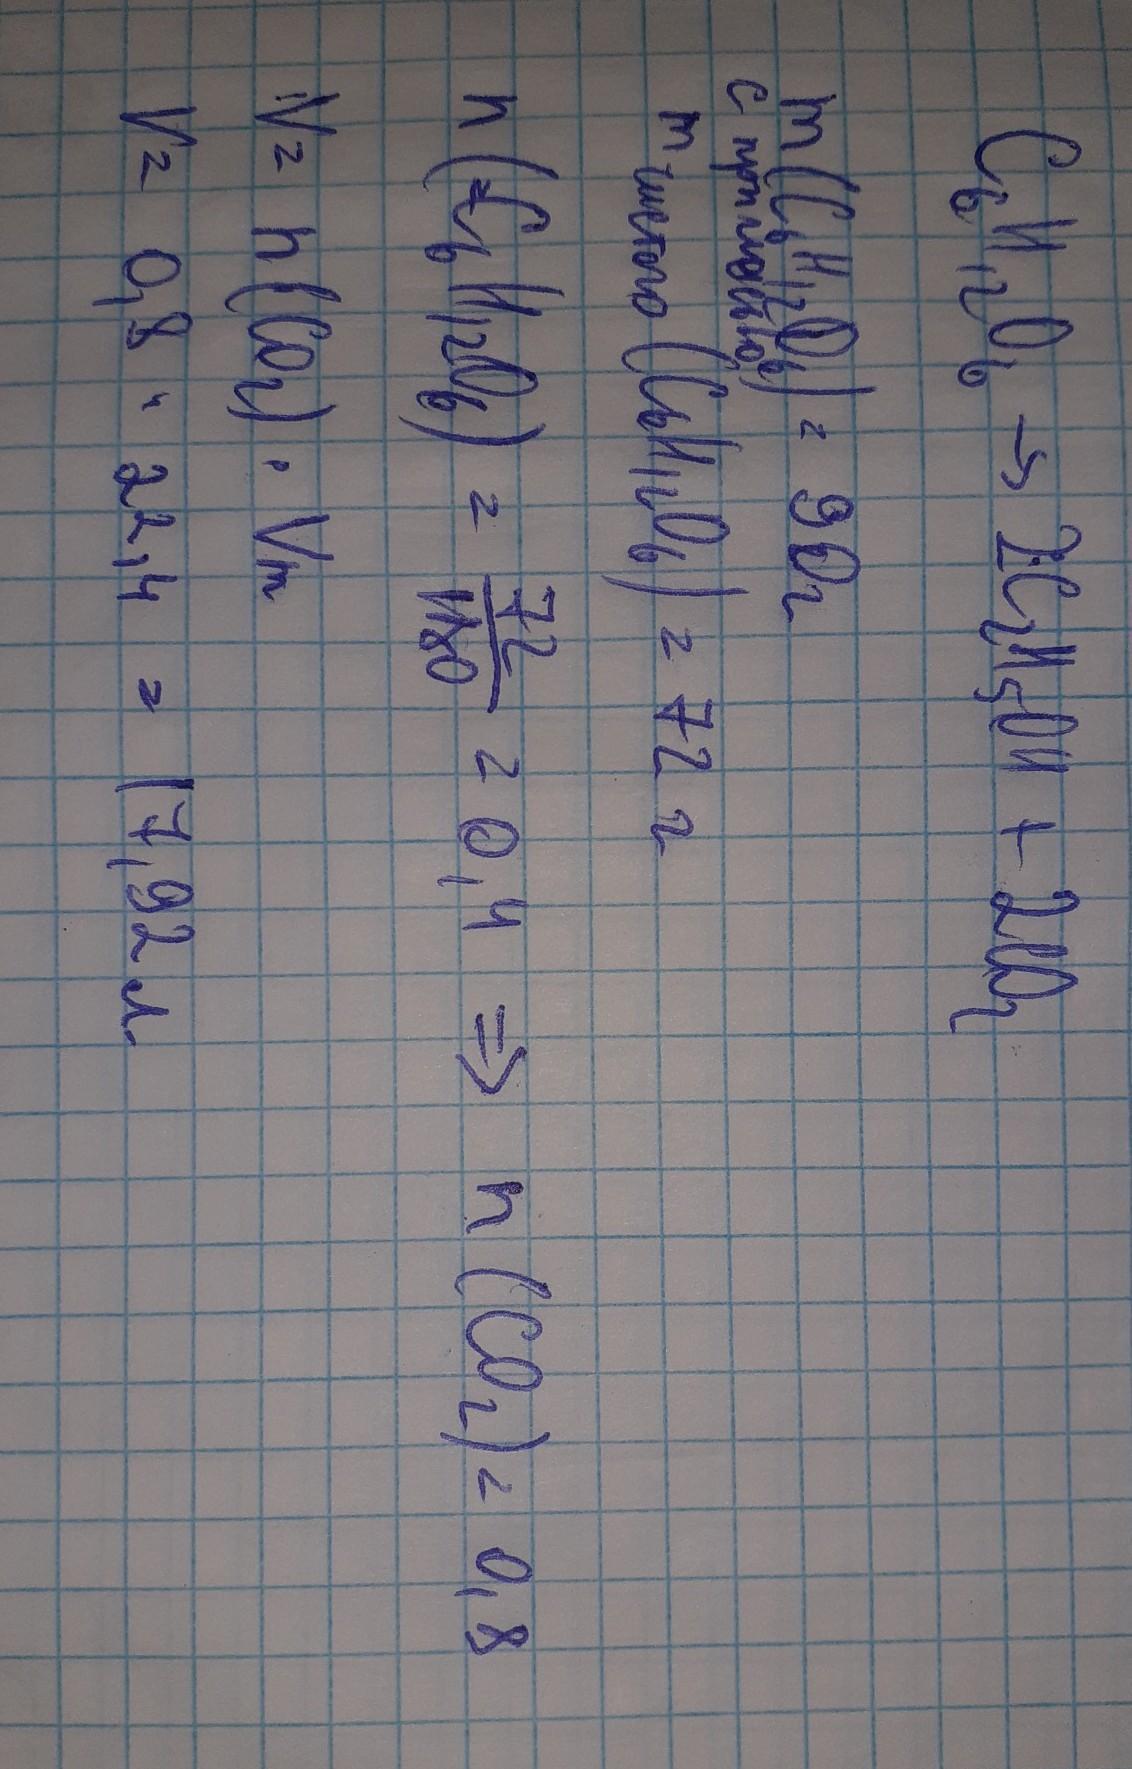 C₆H₁₂O₆ → 2C₂H₅OH + 2CO₂
m(C₆H₁₂O₆) = 90г
с примесью
m чистого (C₆H₁₂O₆) = 72 г
n(C₆H₁₂O₆) = 72/180 = 0,4 ⇒ n(CO₂) = 0,8
V = n(CO₂) · Vm
V = 0,8 · 22,4 = 17,92 л.